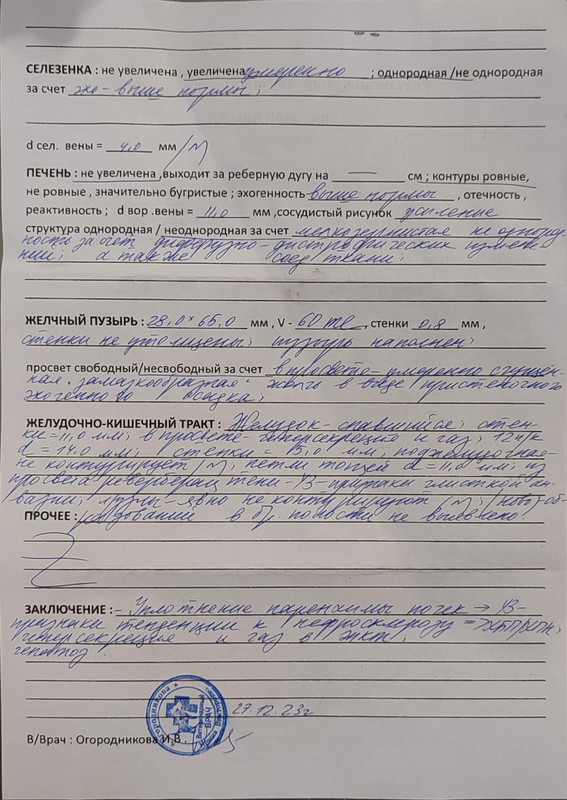 СЕЛЕЗЕНКА : не увеличена , увеличена умеренно ; однородная /не однородная
за счет эхо - выше нормы ;
d сел. вены = 4,0 мм /N
ПЕЧЕНЬ : не увеличена ,выходит за реберную дугу на — см ; контуры ровные,
не ровные , значительно бугристые ; эхогенность выше нормы , отечность ,
реактивность ; d вор .вены = 11,0 мм ,сосудистый рисунок усиление
структура однородная / неоднородная за счет мелкозернистая не однород-
ность за счет диффузно - дистрофических измене-
ний; а также соед. ткани;
ЖЕЛЧНЫЙ ПУЗЫРЬ : 28,0 × 66,0 мм , V - 60 ml , стенки 0,8 мм ,
стенки не утолщены; пузырь наполнен;
просвет свободный/несвободный за счет в просвете - умеренно сгущен-
ная замазкообразная желчь в виде пристеночного
эхогенного осадка;
ЖЕЛУДОЧНО-КИШЕЧНЫЙ ТРАКТ : Желудок - спавшийся; стен-
ки = 11,0 мм; в просвете - гиперсекреция и газ; 12п/к
d = 14,0 мм; стенки = 5,0 мм; поджелудочная -
не контурирует /N; петли тощей d = 11,0 мм; из
просвета реверберац. тени - УЗ - признаки глистной ин-
вазии; лимф. - явно не контурируют /N; ново) об-
ПРОЧЕЕ : разований в бр. полости не выявлено!
ЗАКЛЮЧЕНИЕ : - Уплотнение паренхимы почек → УЗ-
признаки тенденции к нефросклерозу =
гиперсекреция и газ в жкт;
гепатоз.
Огородникова
ВРАЧ
27.12.23г
В/Врач : Огородникова И.В .